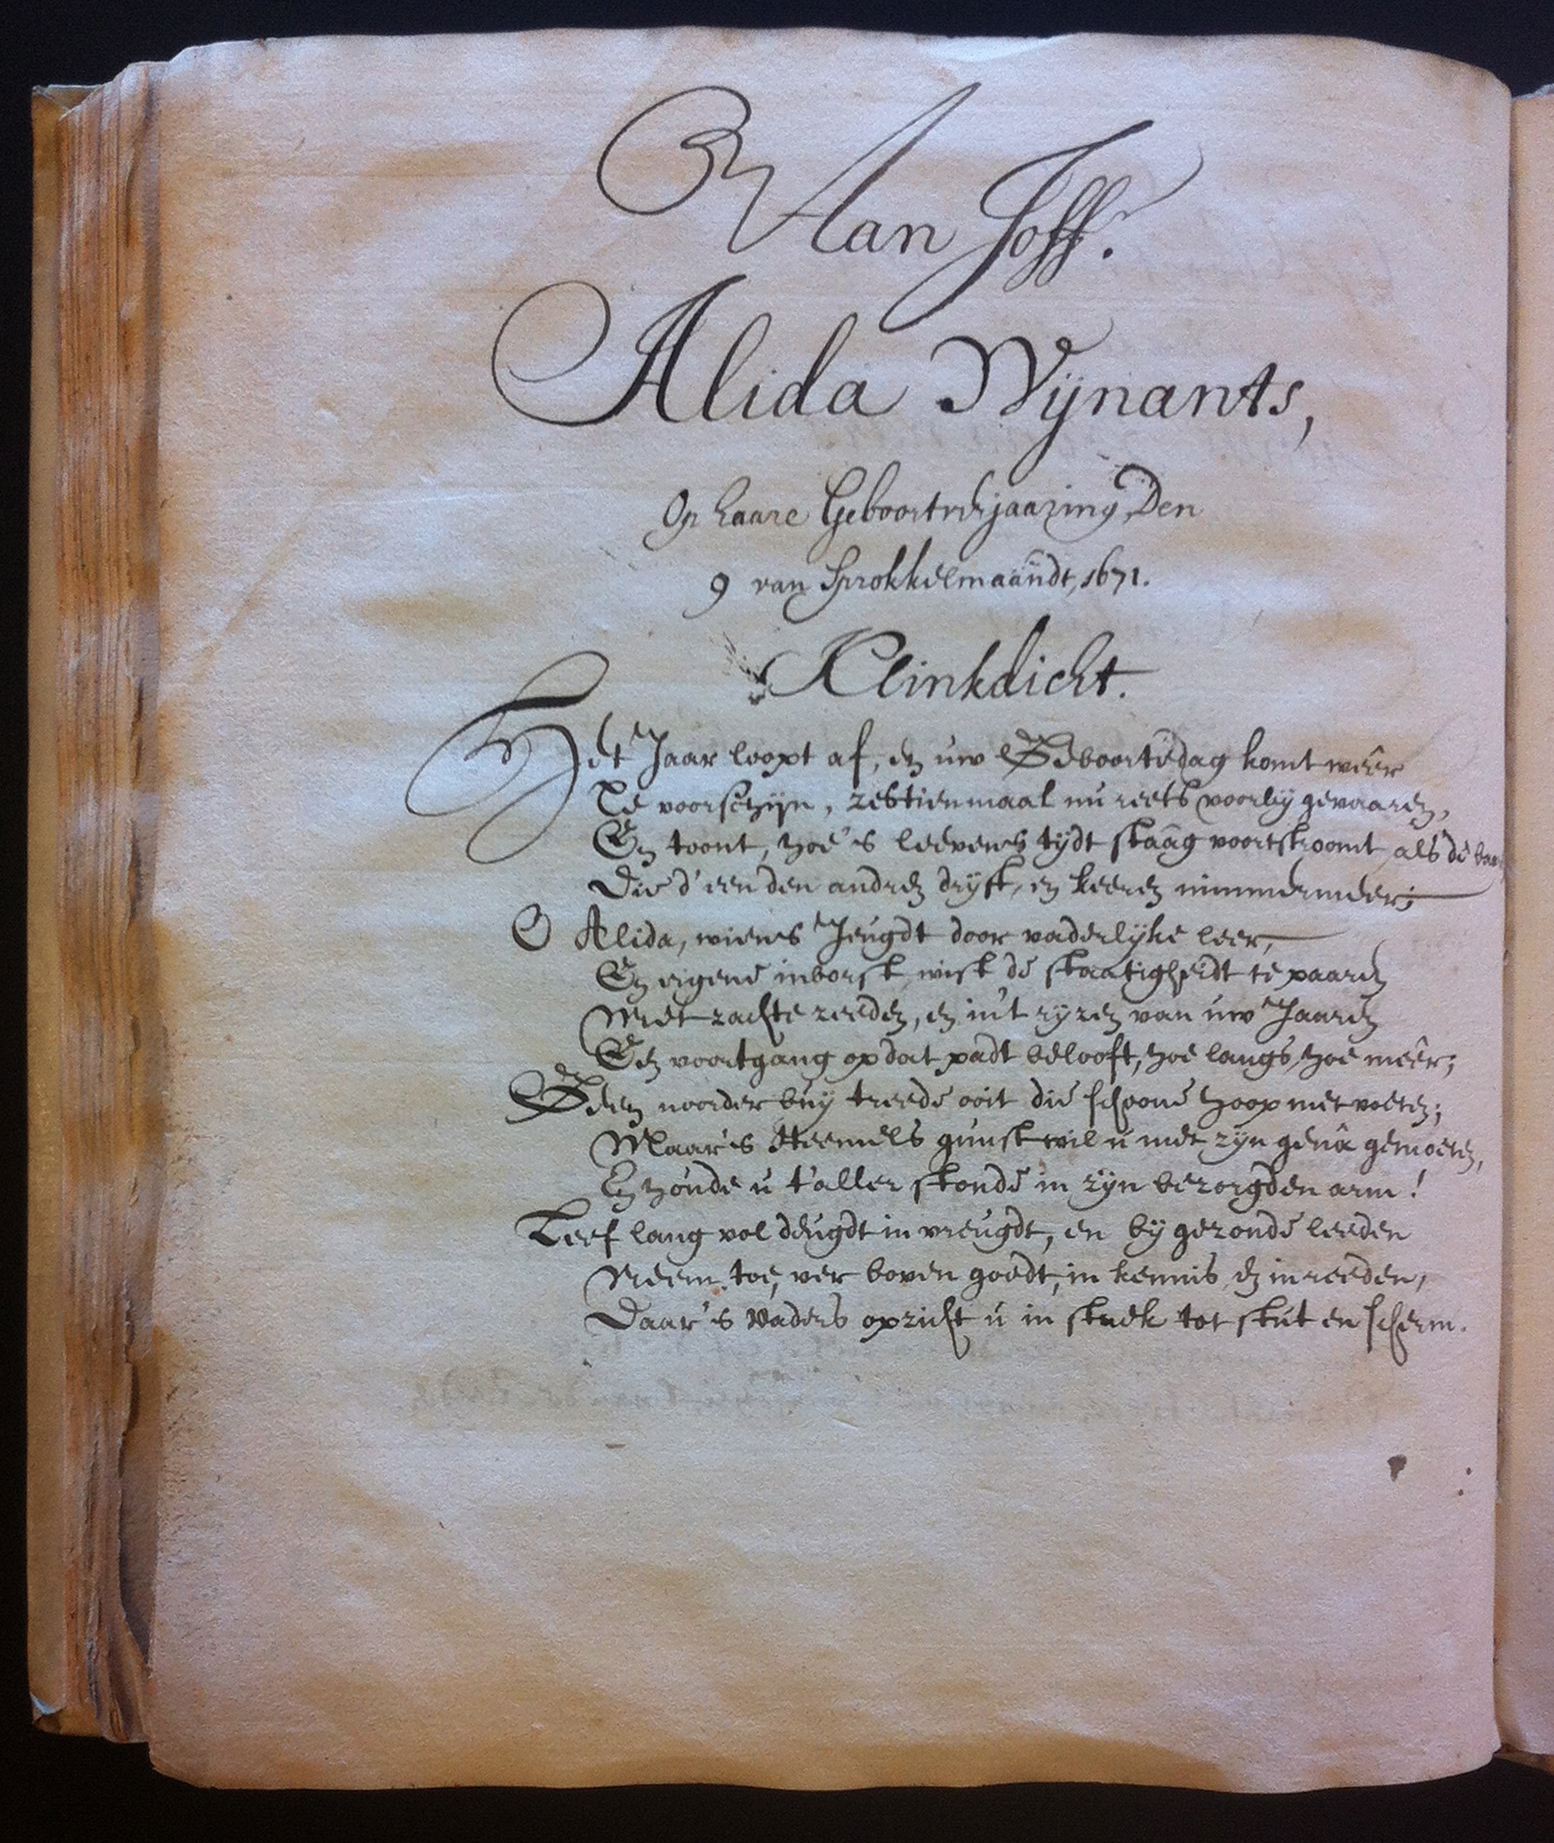 Aan Joffr.
Alida Wijnants,
Op haare Geboortverjaaring, Den
9 van Sprokkelmaandt, 1671.
Klinkdicht.
Het Jaar loopt af, en uw Geboortedag komt weêr
Te voorschijn, zestienmaal nu reets voorby gevaaren,
En toont, hoe 's leevens tydt staâg voortstroomt als de baar
Die d'een den andren dryft, en keeren nimmermeer;
O Alida, wiens Jeugdt door vaderlyke leer,
En eigene inborst, wist de staatigheidt te paaren
Met zachte zeeden, en in't ryzen van uw Jaaren
Een voortgang op dat padt belooft, hoe langs hoe meêr;
Geen noorder buy treede ooit die schoone hoop met voeten;
Maar 's Heemels gunst wil u met zyn genâ gemoeten,
En houde u t'aller stonde in zijn bezorgden arm!
Leef lang vol deugdt in vreugdt, en by gezonde leeden
Neem toe, ver boven goedt, in kennis en in reeden,
Daar 's Vaders opzicht u in strek tot stut en scherm.